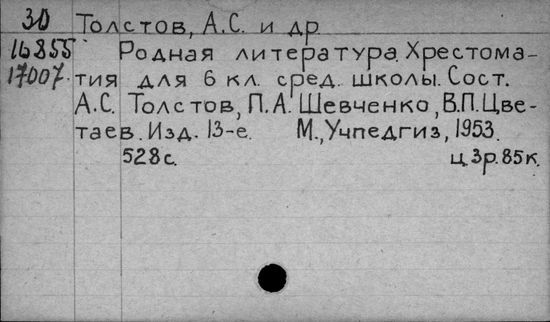 30 Толстов, А.С. и др.
16855 Родная литература. Хрестома-
17007. тия для 6 кл. сред. школы. Сост.
А.С. Толстов, П.А. Шевченко, В.П. Цве-
таев. Изд. 13-е. М., Учпедгиз, 1953.
528с. ц. 3р. 85к.